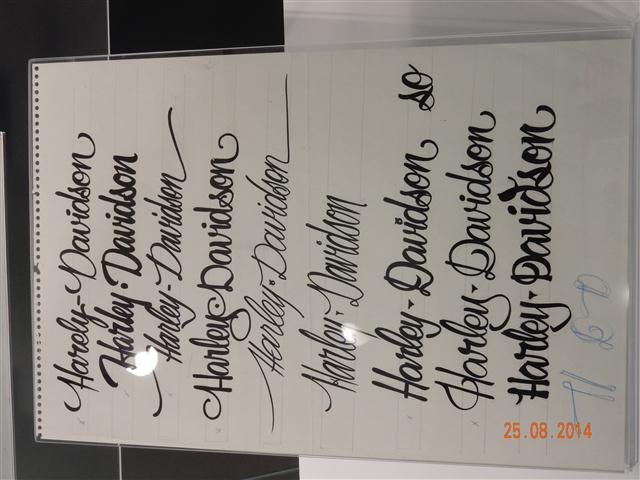 Harely-Davidson
Harley·Davidson
Harley-Davidson
Harley Davidson
Harley·Davidson
Harley-Davidson
Harley-Davidson so
Harley-Davidson
Harley-Davidson
25.08.2014